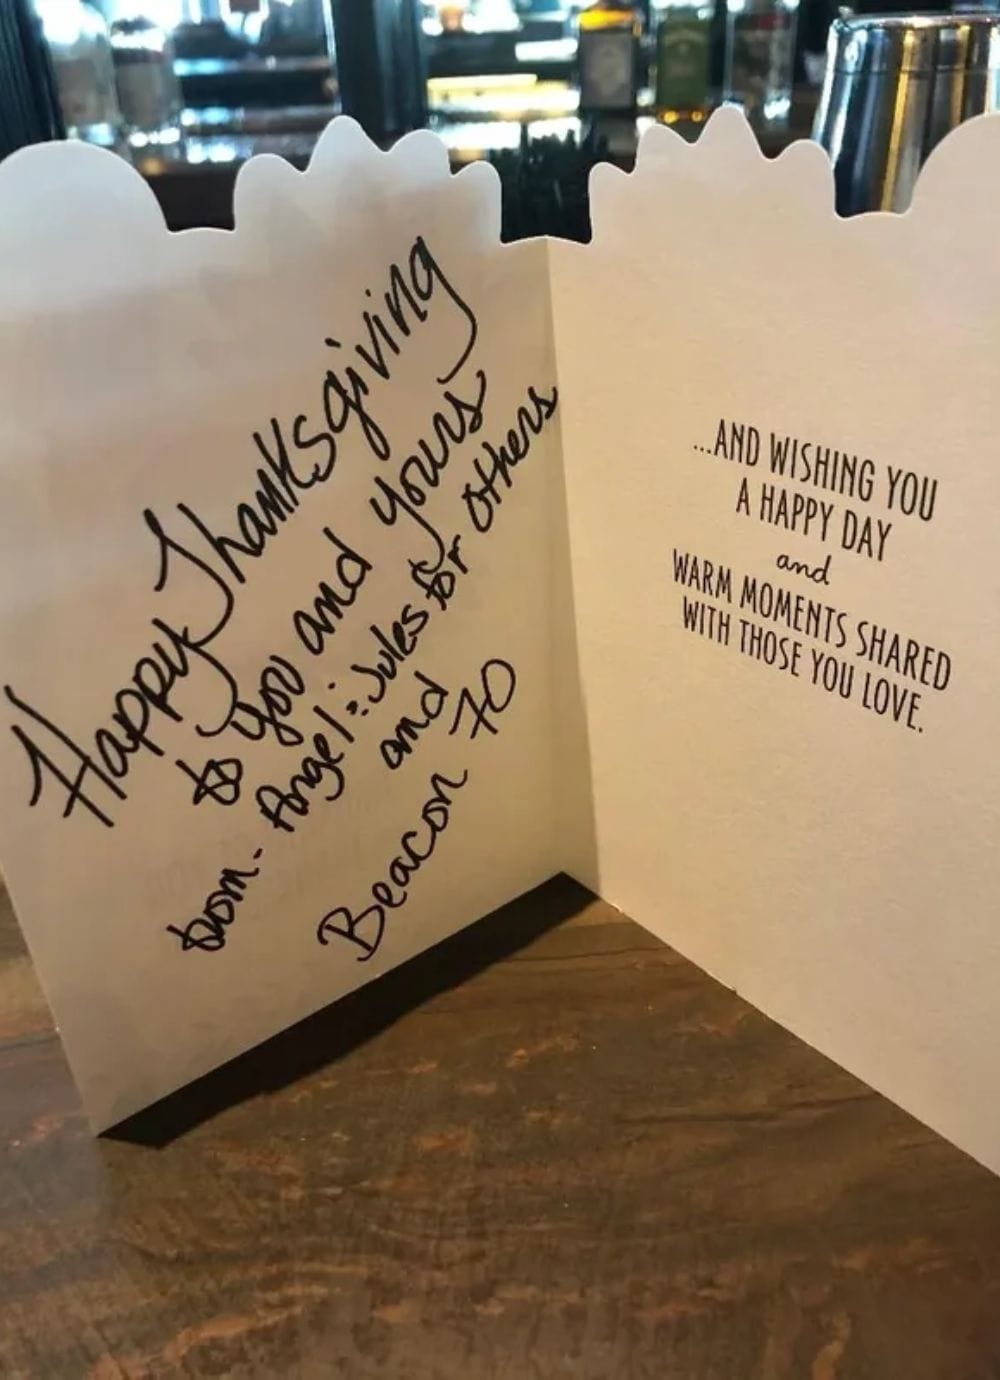 Happy Thanksgiving
to you and yours
from - Angel: Jules for Others
and
Beacon 70
...AND WISHING YOU
A HAPPY DAY
and
WARM MOMENTS SHARED
WITH THOSE YOU LOVE.